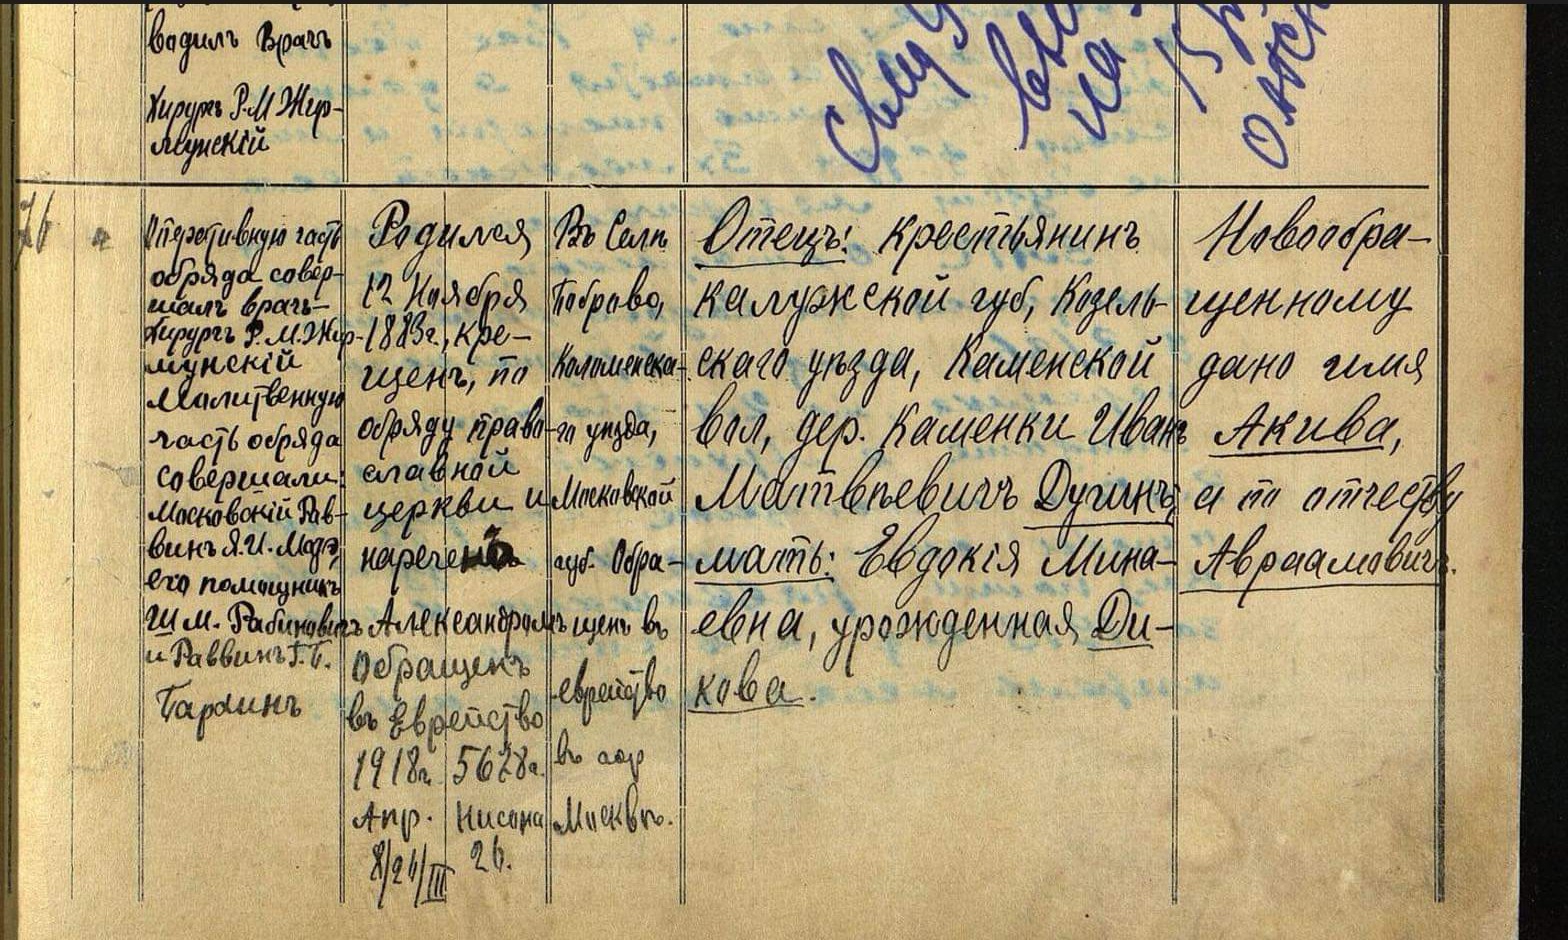 водилъ Врачъ
Хирургъ Р.М Жир-
мунскій
76
Оперативную часть
обряда совер-
шалъ врачъ-
Хирургъ Р.М.Жир-
мунскій
Молитвенную
часть обряда
совершали:
Московскій Рав-
винъ Я.И. Мазэ,
его помощникъ
Ш М. Рабиновичъ
и Раввинъ Г.Б.
Родился
12 Ноября
1883г., кре-
щенъ, по
обряду право-
славной
церкви и
нареченъ
Александромъ
Обращенъ
въ Еврейство
1918г. 5678г.
Апр. Нисона
8/26/III 26.
Въ Селѣ
Боброво,
Коломенска-
го уѣзда,
Московской
губ. Обра-
щенъ въ
еврейство
въ гор
Москвѣ.
Отецъ: крестьянинъ
Калужской губ, Козель-
скаго уѣзда, Каменской
вол, дер. Каменки Иванъ
Матвѣевичъ Дугинъ,
мать: Евдокія Мина-
евна, урожденная Ди-
кова.
Новообра-
щенному
дано имя
Акива,
а по отчеству
Авраамовичъ.